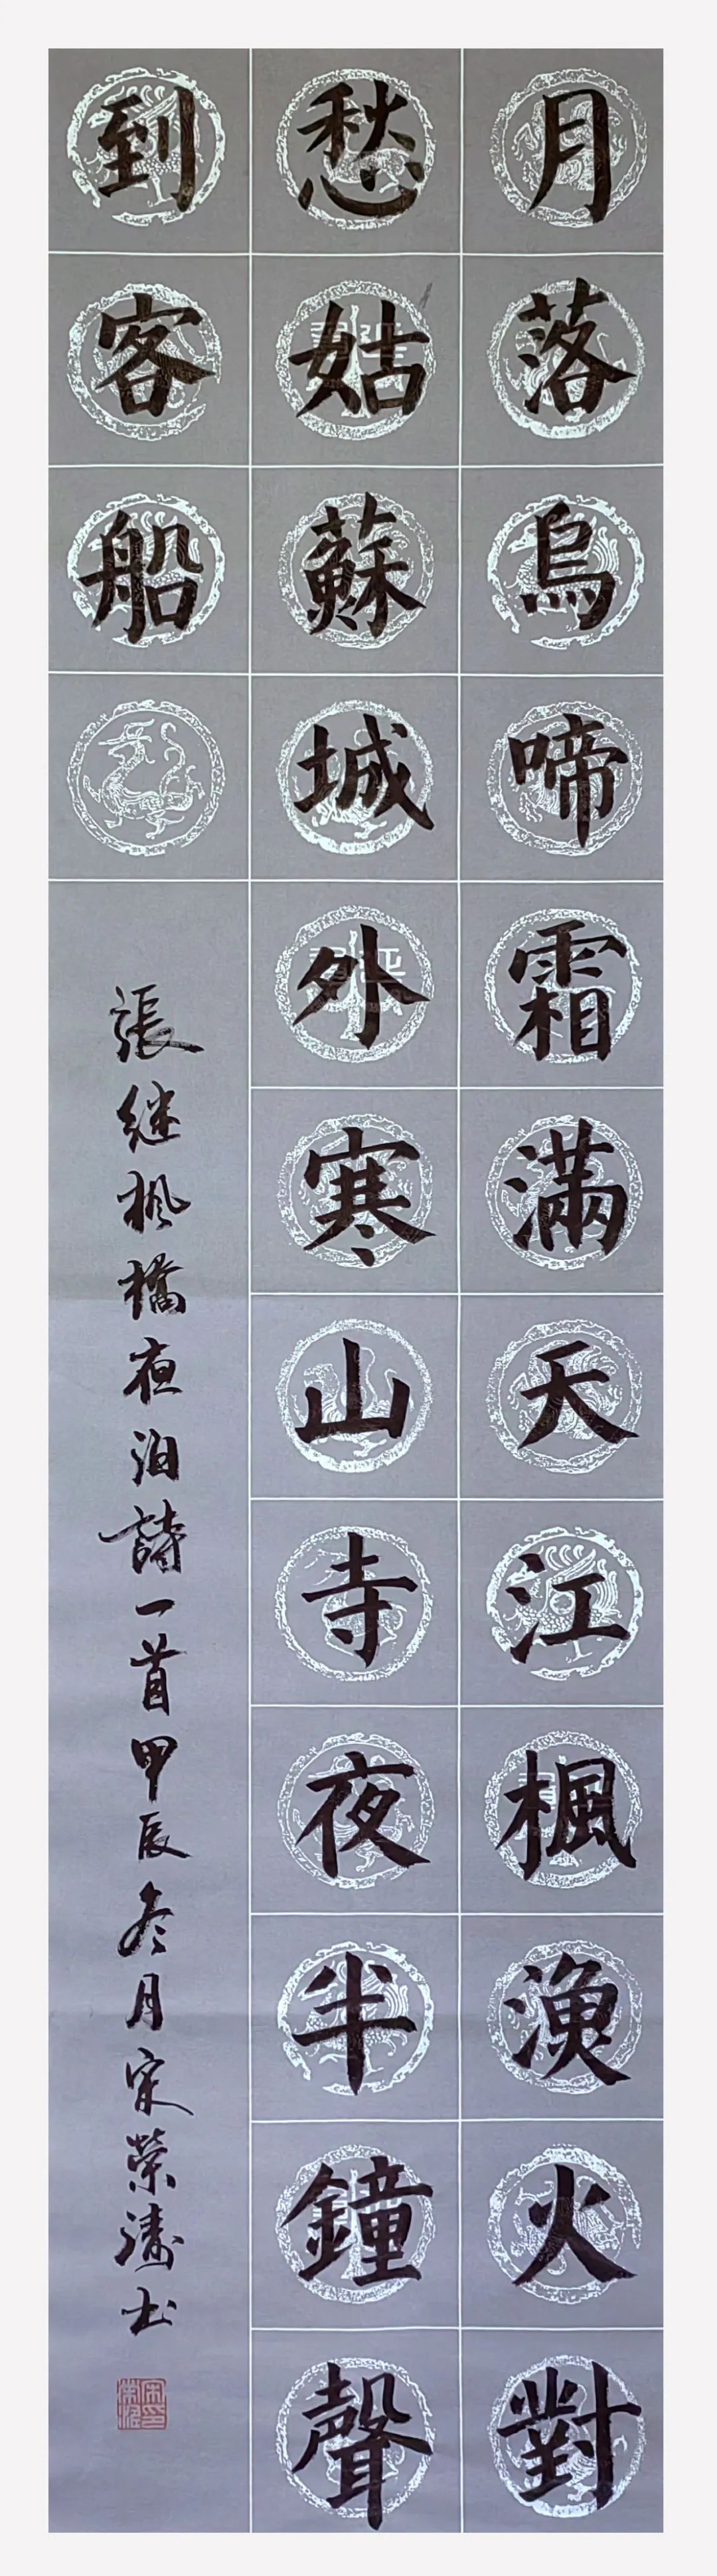 月落烏啼霜滿天江楓漁火對
愁姑蘇城外寒山寺夜半鐘聲
到客船
張継枫橋夜泊詩一首甲辰冬月宋榮濤书